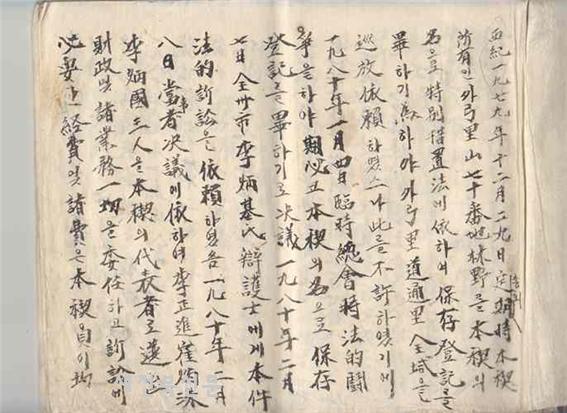 西紀一九七九年十二月二九日定期時本楔
所有인外弓里山七十番地林野를本楔의
名으로特別措置法에依하여保存登記를
畢하기爲하야外弓里道通里全域을
巡放依賴하였으나此를不許하였기에
一九八十年一月四日臨時總會時法的鬪
爭을하야期必고本楔의名으로保存
登記를畢하기로决議一九八十年二月
七日全州市李炳基氏辯護士에게本件
法的訴訟을依賴하였음一九八十年二月
八日當者决議에依하여李正進崔
李炳國三人을本楔의代表者로選
財政및諸業務一切을委任하고訴訟에
必要한經費및諸費은本楔員이